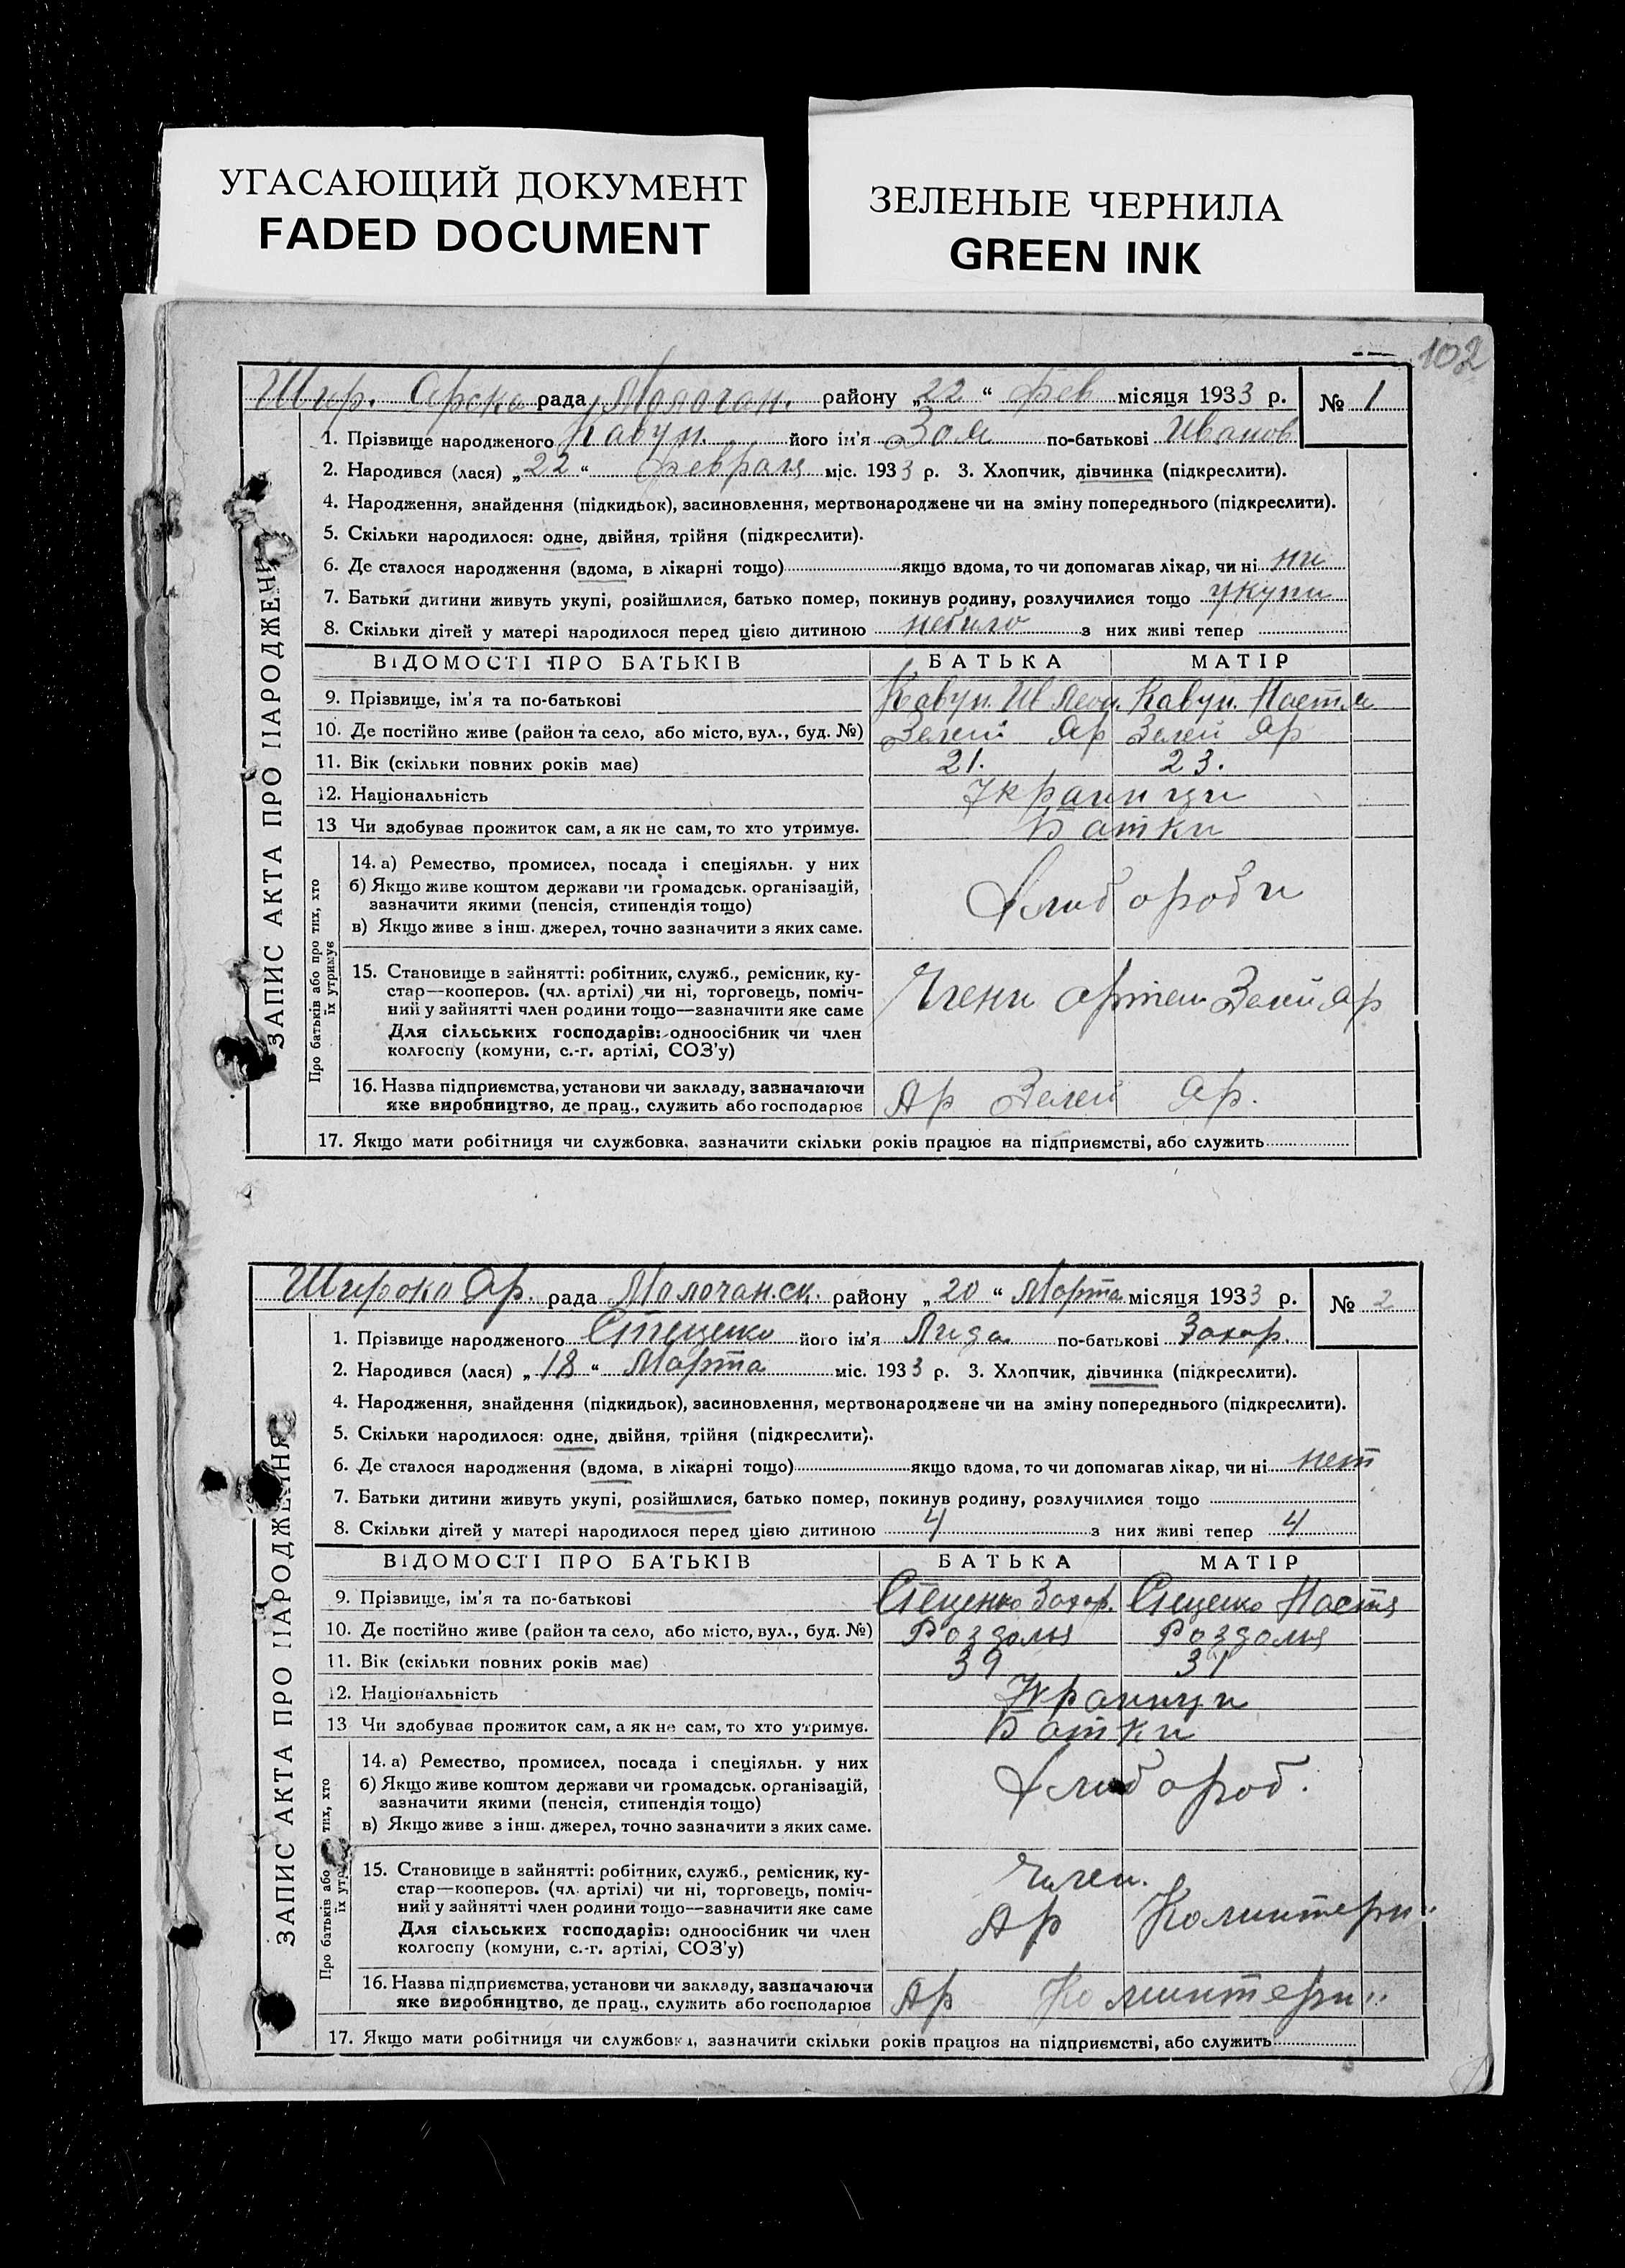 УГАСАЮЩИЙ ДОКУМЕНТ
FADED DOCUMENT
ЗЕЛЕНЫЕ ЧЕРНИЛА
GREEN INK
102
Шир. Ярска рада Молочан. району „22“ Фев місяця 1933 р. № 1
ЗАПИС АКТА ПРО НАРОДЖЕННЯ
1. Прізвище народженого Кавун. його ім'я Зоя по-батькові Иванов
2. Народився (лася) „22“ Февраля міс. 1933 р. 3. Хлопчик, дівчинка (підкреслити).
4. Народження, знайдення (підкидьок), засиновлення, мертвонароджене чи на зміну попереднього (підкреслити).
5. Скільки народилося: одне, двійня, трійня (підкреслити).
6. Де сталося народження (вдома, в лікарні тощо) якщо вдома, то чи допомагав лікар, чи ні ни
7. Батьки дитини живуть укупі, розійшлися, батько помер, покинув родину, розлучилися тощо укупи
8. Скільки дітей у матері народилося перед цією дитиною небило з них живі тепер
ВІДОМОСТІ ПРО БАТЬКІВ БАТЬКА МАТІР
9. Прізвище, ім'я та по-батькові Кавун. Ив Кавун. Настя
10. Де постійно живе (район та село, або місто, вул., буд. №) Зелей Яр Зелей Яр
11. Вік (скільки повних років має) 21. 23.
12. Національність Украинци
13 Чи здобуває прожиток сам, а як не сам, то хто утримує. Батки
Про батьків або про тих, хто їх утримує
14. а) Ремество, промисел, посада і спеціяльн. у них
б) Якщо живе коштом держави чи громадськ. організацій,
зазначити якими (пенсія, стипендія тощо)
в) Якщо живе з інш. джерел, точно зазначити з яких саме.
Хлиборобы
15. Становище в зайнятті: робітник, служб., ремісник, ку-
стар—кооперов. (чл. артілі) чи ні, торговець, поміч-
ний у зайнятті член родини тощо—зазначити яке саме
Для сільських господарів: одноосібник чи член
колгоспу (комуни, с.-г. артілі, СОЗ'у)
Члени артели Зелей Яр
16. Назва підприємства, установи чи закладу, зазначаючи
яке виробництво, де прац., служить або господарює Ар Зелей Яр.
17. Якщо мати робітниця чи службовка, зазначити скільки років працює на підприємстві, або служить
Широко Яр. рада Молочанск. району „20“ Марта місяця 1933 р. № 2
ЗАПИС АКТА ПРО НАРОДЖЕННЯ
1. Прізвище народженого Стеценко його ім'я Лида по-батькові Захар.
2. Народився (лася) „18“ Марта міс. 1933 р. 3. Хлопчик, дівчинка (підкреслити).
4. Народження, знайдення (підкидьок), засиновлення, мертвонароджене чи на зміну попереднього (підкреслити).
5. Скільки народилося: одне, двійня, трійня (підкреслити).
6. Де сталося народження (вдома, в лікарні тощо) якщо вдома, то чи допомагав лікар, чи ні нет
7. Батьки дитини живуть укупі, розійшлися, батько помер, покинув родину, розлучилися тощо
8. Скільки дітей у матері народилося перед цією дитиною 4 з них живі тепер 4
ВІДОМОСТІ ПРО БАТЬКІВ БАТЬКА МАТІР
9. Прізвище, ім'я та по-батькові Стеценко Захар. Стеценко Настя
10. Де постійно живе (район та село, або місто, вул., буд. №) Роздоля Роздоля
11. Вік (скільки повних років має) 39 31
12. Національність Украинци
13 Чи здобуває прожиток сам, а як не сам, то хто утримує. Батки
Про батьків або тих, хто їх
14. а) Ремество, промисел, посада і спеціяльн. у них
б) Якщо живе коштом держави чи громадськ. організацій,
зазначити якими (пенсія, стипендія тощо)
в) Якщо живе з інш. джерел, точно зазначити з яких саме.
Хлибороб.
15. Становище в зайнятті: робітник, служб., ремісник, ку-
стар—кооперов. (чл. артілі) чи ні, торговець, поміч-
ний у зайнятті член родини тощо—зазначити яке саме
Для сільських господарів: одноосібник чи член
колгоспу (комуни, с.-г. артілі, СОЗ'у)
Член.
Ар Коминтерн.
16. Назва підприємства, установи чи закладу, зазначаючи
яке виробництво, де прац., служить або господарює Ар Коминтерн
17. Якщо мати робітниця чи службовка, зазначити скільки років працює на підприємстві, або служить